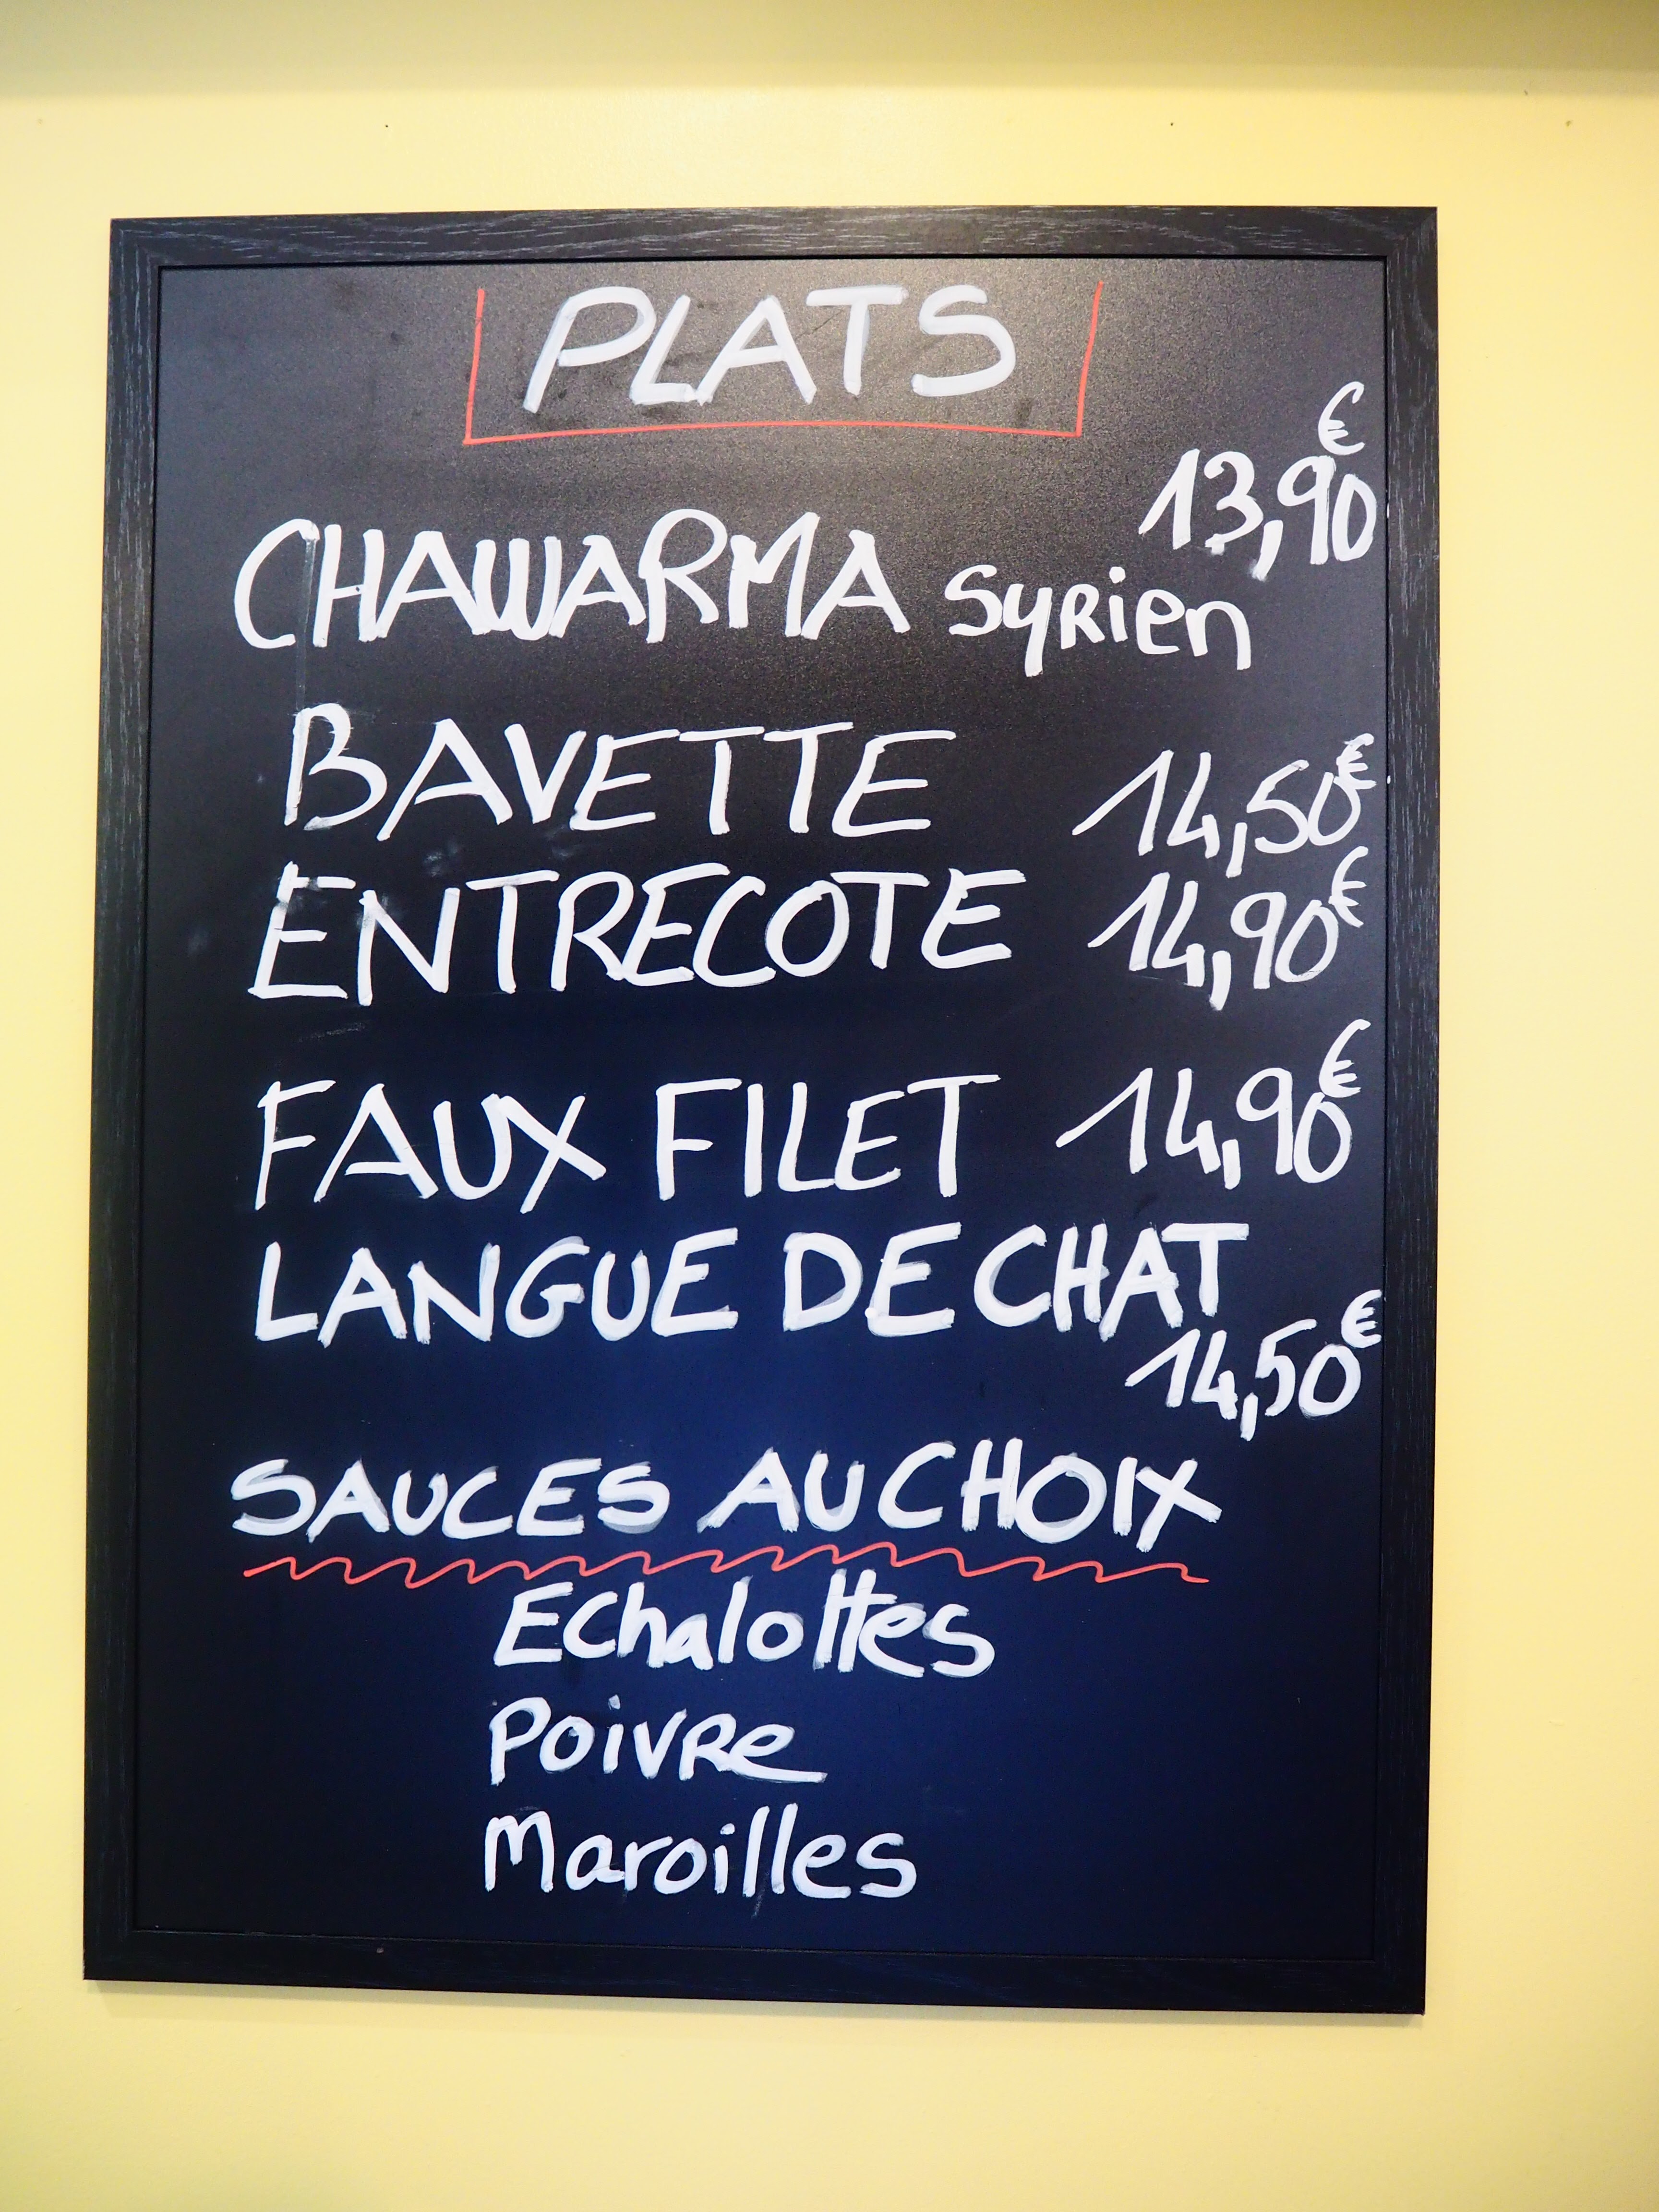 PLATS
CHAWARMA Syrien 13,90€
BAVETTE 14,50€
ENTRECOTE 14,90€
FAUX FILET 14,90€
LANGUE DE CHAT
14,50€
SAUCES AU CHOIX
Echalottes
Poivre
Maroilles